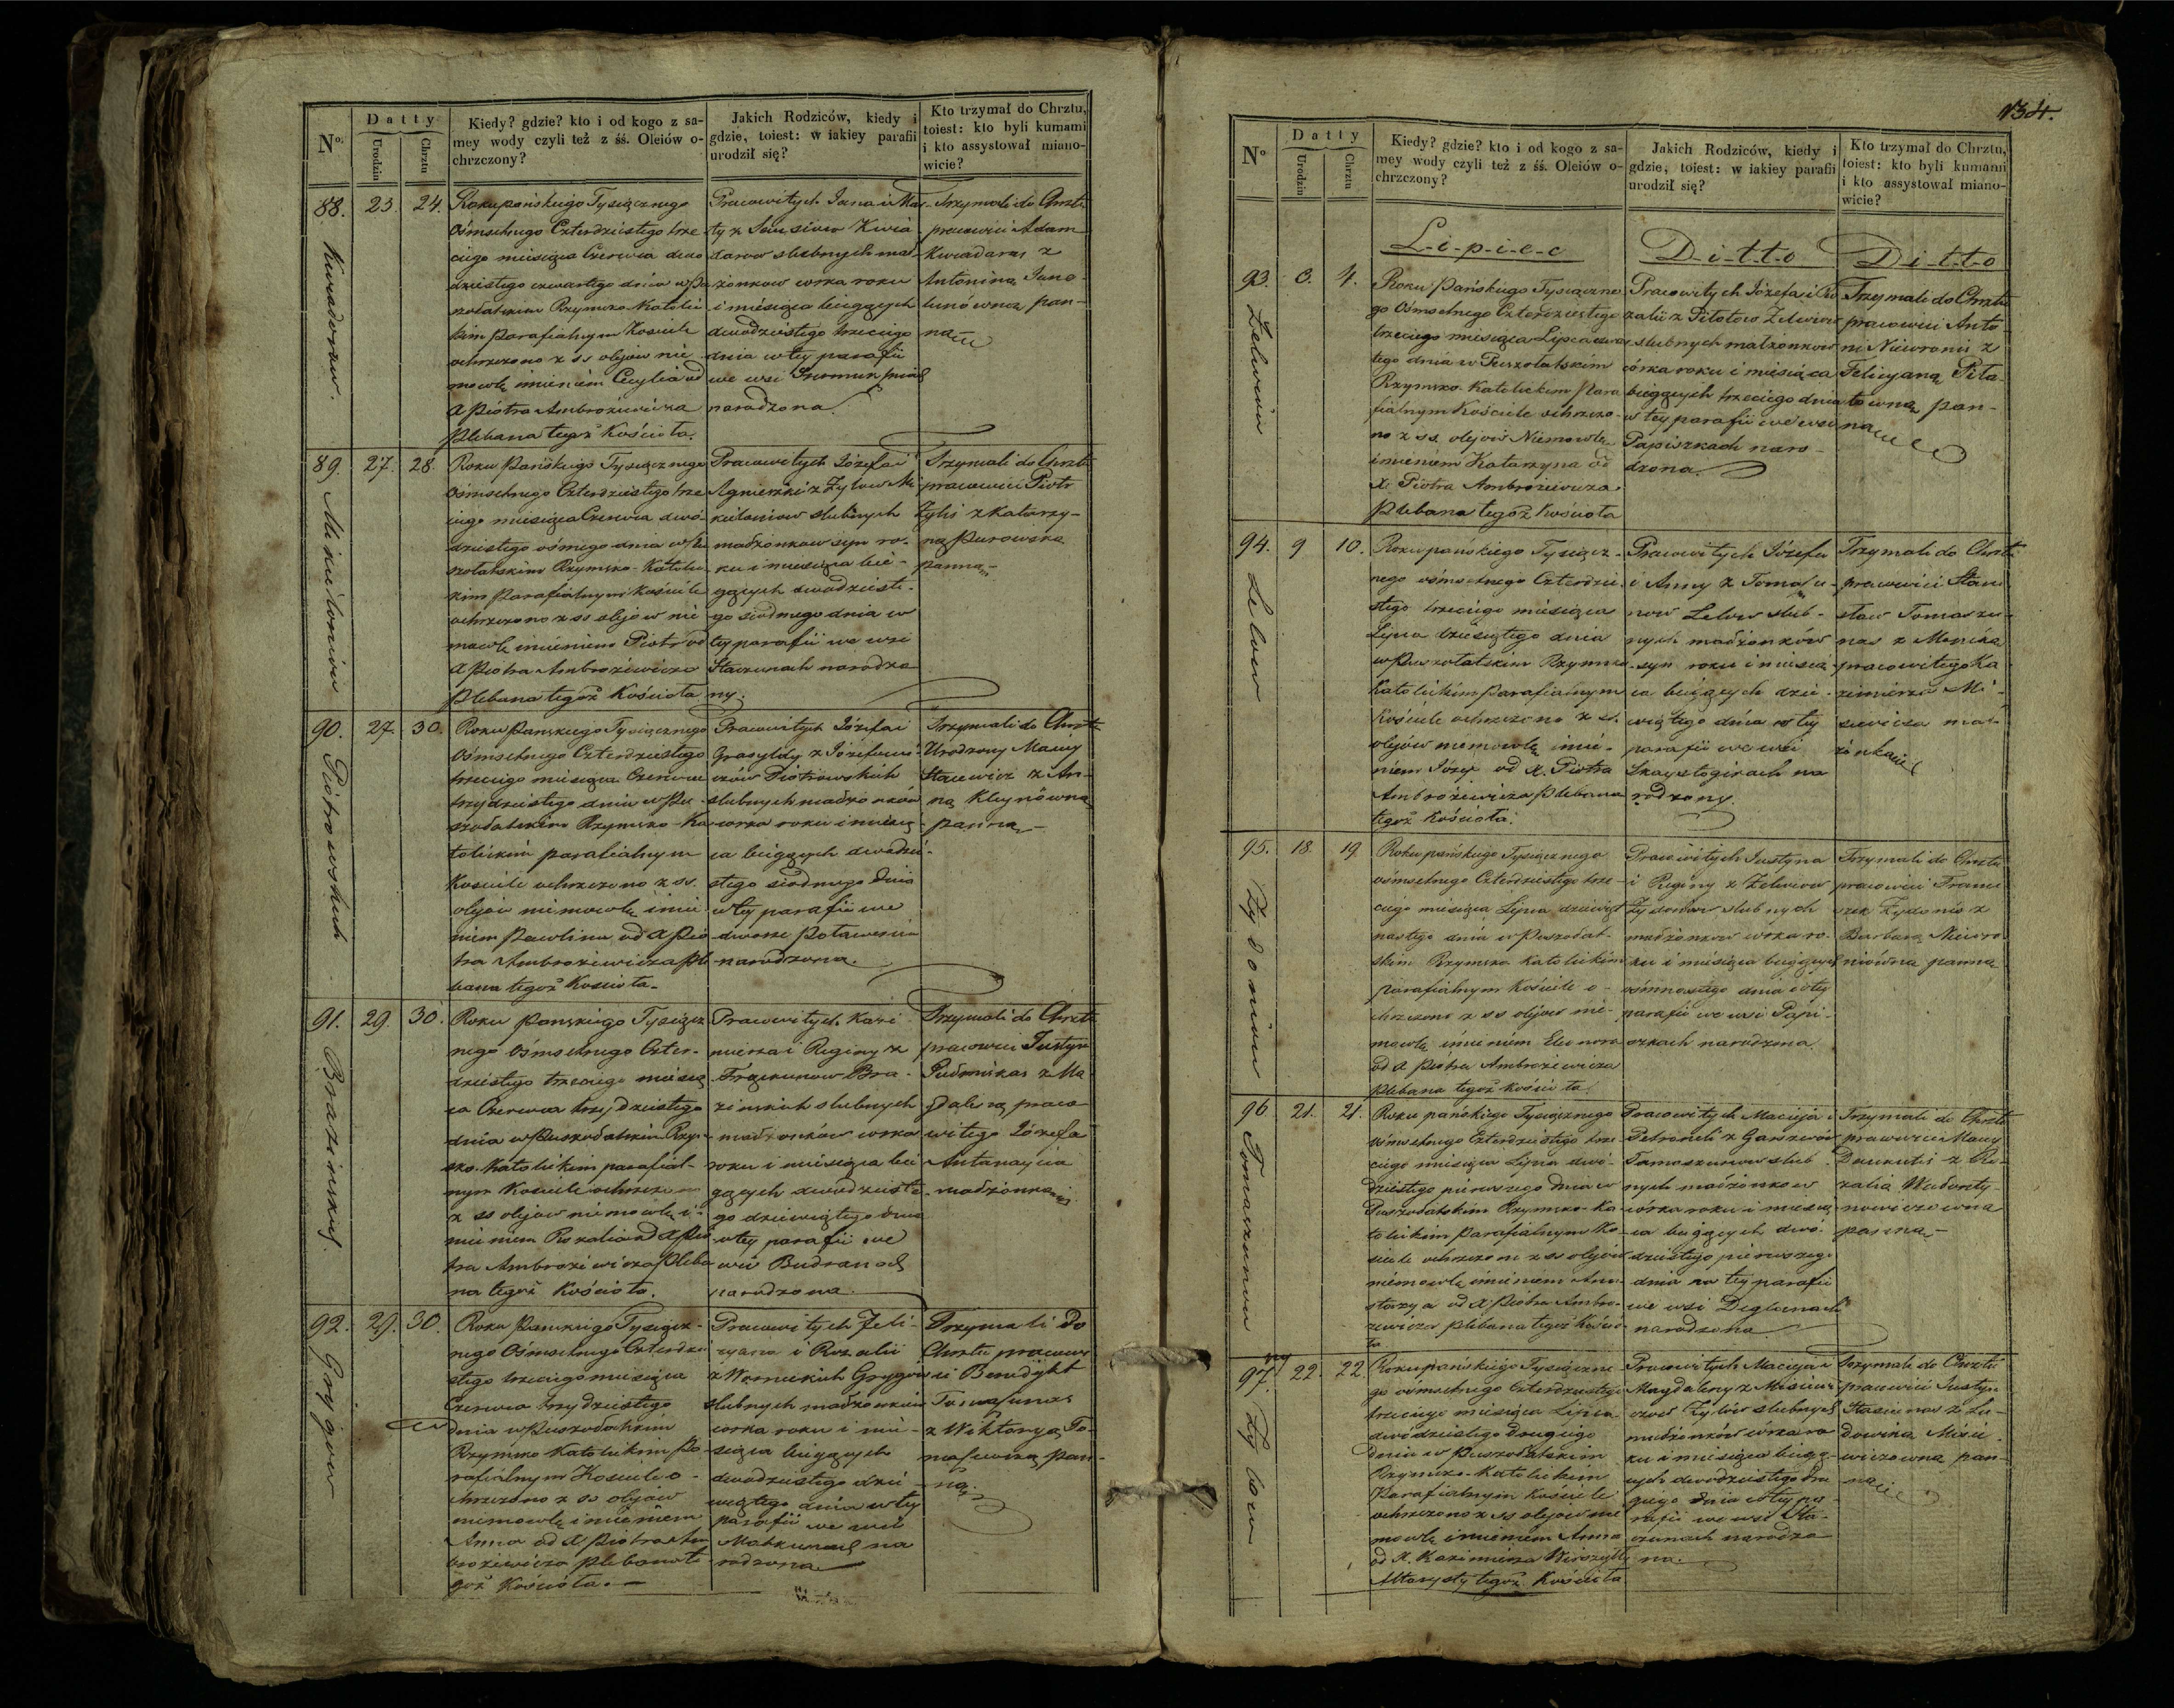 No
Datty
Urodzin
Chrztu
Kiedy? gdzie? kto i od kogo z sa-
mey wody czyli też z śś. Oleiów o-
chrzczony?
Jakich Rodziców, kiedy i
gdzie, toiest: w iakiey parafii
urodził się?
Kto trzymał do Chrztu,
toiest: kto byli kumami
i kto assystował miano-
wicie?
88. 23. 24.
Roku pańskiego Tysiącznego
Ośmsetnego Czterdziestego trze
ciego miesiąca Czerwca dwu
dziestego czwartego dnia w Pu
szołatskim Rzymsko Katolic
kim Parafialnym Kosciele
ochrzczono z ss olejow nie
mowlę imieniem Cecylia od
X Piotra Ambrożewicza
Plebana tegoż Kościoła.
Pracowitych Jana i Mar
ślubnych mał-
żonkow corka roku
i miesiąca bieżących
dwudziestego trzeciego
dnia w tey parafii
we wsi
narodzona.
Trzymali do Chrztu
pracowici Adam
Kwiadaras z
Antoniną
pan-
ną
89. 27. 28.
Roku Pańskiego Tysiącznego
Ośmsetnego Czterdziestego trze
ciego miesiąca Czerwca dwó-
dziestego ósmego dnia w Pu
szołatskim Rzymsko-Katolic
kim Parafialnym Kościele
ochrzczono z ss olejow nie
mowlę imieniem Piotr od
X Piotra Ambrożewicza
Plebana tegoż Kościoła
Pracowitych Józefa i
Agnieszki z Zylow Mi
kietoniow ślubnych
małżonkow syn ro-
ku i miesiąca bie-
żących dwudzieste-
go siódmego dnia w
tey parafii we wsi
Staczunach narodzo
ny.
Trzymali do Chrztu
pracowici Piotr
Zylis z Katarzy-
ną Purowską
panną
90. 27. 30.
Piotrowskich
Roku Pańskiego Tysiącznego
Ośmsetnego Czterdziestego
trzeciego miesiąca Czerwca
trzydziestego dnia w Pu-
szołatskim Rzymsko-Ka
tolickim parafialnym
Kosciele ochrzczono z ss.
olejow niemowlę imie
niem Paulina od X Pio
tra Ambrożewicza Ple
bana tegoż Kościoła.
Pracowitych Józefa i
Gracyldy z Józefowi-
czów Piotrowskich
slubnych małżonków
corka roku i miesią
ca bieżących dwudzie-
stego siodmego dnia
w tey parafii we
dworze
narodzona.
Trzymali do Chrztu
Urodzony Maciey
Stacewicz z An-
ną Kleynówną
panną
91. 29. 30.
Brazinskich
Roku Pańskiego Tysiącz
nego Ośmsetnego Czter-
dziestego trzeciego miesią
ca Czerwca trzydziestego
dnia w Puszołatskim Rzym-
sko-Katolickim parafial-
nym Kosciele ochrzczono
z ss olejow niemowlę i-
mieniem Rozalia od X Pio
tra Ambrożewicza Pleba
na tegoż Kościoła.
Pracowitych Kazi
mierza i Reginy z
Frąckunow Bra-
zinskich slubnych
małżonków corka
roku i miesiąca bie
żących dwudzieste-
go dziewiątego dnia
w tey parafii we
wsi Budranach
narodzona.
Trzymali do Chrztu
pracowici Justyn
z Ma
gdaleną praco
witego Józefa
Antanaycia
małżonką
92. 29. 30.
Grygow
Roku Pańskiego Tysiącz-
nego Ośmsetnego Czterdzie
stego trzeciego miesiąca
Czerwca trzydziestego
dnia w Puszołackim
Rzymsko Katolickim Pa-
rafialnym Kosciele o-
chrzczono z ss olejow
niemowlę imieniem
Anna od X Piotra Am
brożewicza Plebana te
goż Kościoła.
Pracowitych Feli-
cyana i Rozalii
z Grygow
slubnych małżonkow
corka roku i mie-
siąca bieżących
dwudziestego dzie-
wiątego dnia w tey
parafii we wsi
Matkunach na
rodzona
Trzymali do
Chrztu pracowi
ci Benedykt
Tomaszunas
z Wiktoryą To-
pan-
ną.
134.
No
Datty
Urodzin
Chrztu
Kiedy? gdzie? kto i od kogo z sa-
mey wody czyli też z śś. Oleiów o-
chrzczony?
Jakich Rodziców, kiedy i
gdzie, toiest: w iakiey parafii
urodził się?
Kto trzymał do Chrztu,
toiest: kto byli kumami
i kto assystował miano-
wicie?
L-i-p-i-e-c
D-i-t-t-o
D-i-t-t-o
93. 3. 4.
Roku Pańskiego Tysiączne
go Ośmsetnego Czterdziestego
trzeciego miesiąca Lipca czwar
tego dnia w Puszołatskim
Rzymsko-Katolickim Para
fialnym Kościele ochrzczo-
no z ss. olejow Niemowlę
imieniem Katarzyna od
X. Piotra Ambrożewicza
Plebana tegoż Kościoła
Pracowitych Józefa i Ro
zalii z
slubnych małżonkow
córka roku i miesiąca
bieżących trzeciego dnia
w tey parafii we wsi
Papiszkach naro-
dzona.
Trzymali do Chrztu
pracowici Anto-
ni Niewronis z
Felicyaną Pita-
towną pan-
ną
94. 9 10.
Lelow
Roku pańskiego Tysiącz-
nego ośmsetnego Czterdzie-
stego trzeciego miesiąca
Lipca dziesiątego dnia
w Puszołatskim Rzymsko
Katolickim Parafialnym
Kościele ochrzczono z ss.
olejów niemowlę imie-
niem Józef od X. Piotra
Ambrożewicza Plebana
tegoż Kościoła.
Pracowitych Józefa
i Anny z Tomaszu-
now Lelow ślub-
nych małżonków
syn roku i miesią-
ca bieżących dzie-
wiątego dnia w tey
parafii we wsi
Skaystogirach na
rodzony.
Trzymali do Chrztu
pracowici Stani
sław Tomaszu-
nas z
pracowitego Ka
zimierza Mi-
siewicza mał-
żonką
95. 18. 19
Zydoniow
Roku pańskiego Tysiącznego
ośmsetnego Czterdziestego trze-
ciego miesiąca Lipca dziewięt
nastego dnia w Puszołat-
skim Rzymsko Katolickim
parafialnym Kościele o-
chrzczono z ss olejow nie-
mowlę imieniem Eleonora
od X Piotra Ambrożewicza
Plebana tegoż Kościoła
Pracowitych Justyna
i Reginy z Zelwiow
Zydoniow slubnych
małżonkow córka ro-
ku i miesiąca bieżących
ośmnastego dnia w tey
parafii we wsi Papi-
szkach narodzona.
Trzymali do Chrztu
pracowici Franci
szek Zydonis z
Barbarą Niewro
niówną panną
96. 21. 21.
Tomaszunow
Roku pańskiego Tysiącznego
ośmsetnego Czterdziestego trze-
ciego miesiąca Lipca dwó-
dziestego pierwszego dnia w
Puszołatskim Rzymsko-Ka
tolickim Parafialnym Ko-
ściele ochrzczono z ss olejow
niemowlę imieniem Ana-
stazya od X Piotra Ambro-
żewicza plebana tegoż Kościo
ła
Pracowitych Macieja i
Petroneli z Garszwów
Tomaszunow slub-
nych małżonkow
córka roku i miesią
ca bieżących dwó-
dziestego pierwszego
dnia w tey parafii
we wsi Deglenach
narodzona
Trzymali do Chrztu
pracowici Maciey
z Ro-
zalią
panną
97. 22. 22
Zylow
Roku pańskiego Tysiączne-
go ośmsetnego Czterdziestego
trzeciego miesiąca Lipca
dwódziestego drugiego
dnia w Puszołatskim
Rzymsko-Katolickim
Parafialnym Kościele
ochrzczono z ss olejow nie
mowlę imieniem Anna
od X. Kazimierza
Altarysty tegoż Kościoła
Pracowitych Macieja i
Magdaleny z Misiewi-
czow Zylów slubnych
małżonków córka ro
ku i miesiąca bieżą-
cych dwudziestego dru
giego dnia w tey pa-
rafii we wsi Sta-
czunach narodzo
na.
Trzymali do Chrztu
pracowici Justyn
z Lu-
dowiką Misie-
wiczowną pan-
ną